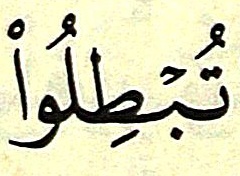 تُبۡطِلُواْ